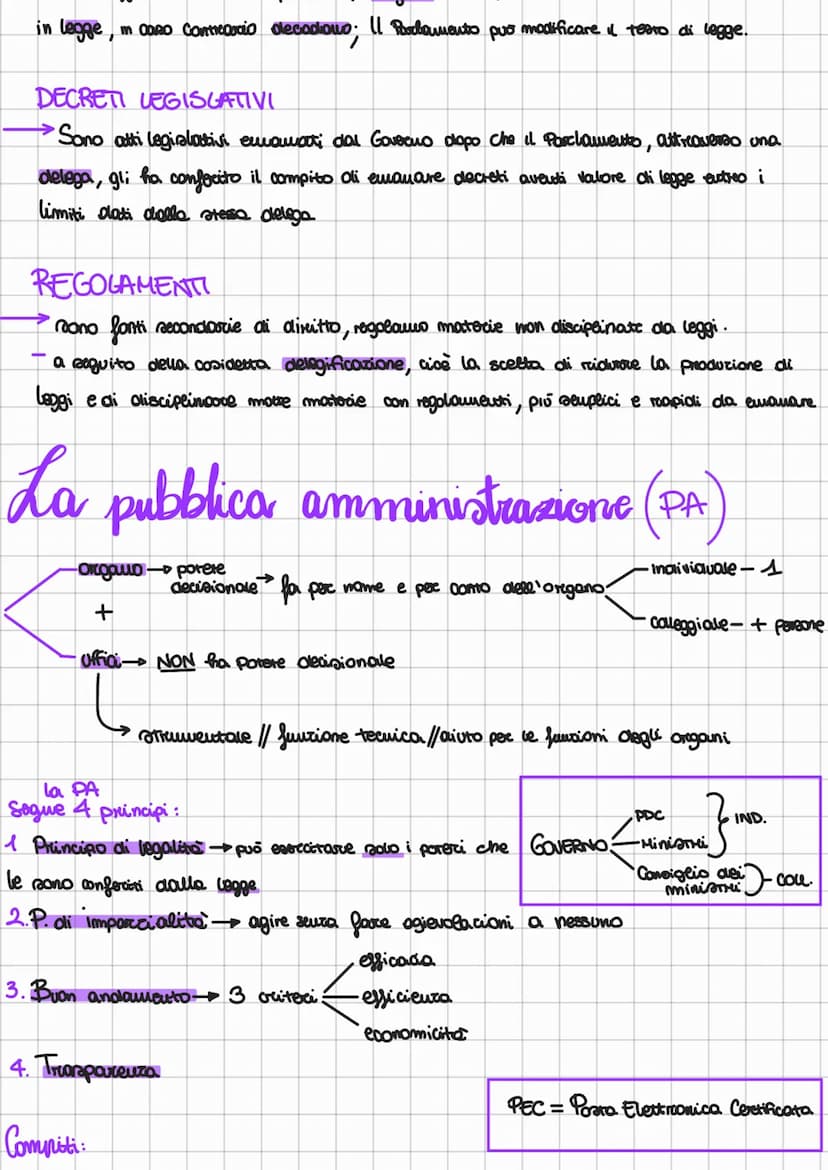 in legge, in caso contrario decadono; Il Parlamento può modificare il testo di legge.
DECRETI LEGISLATIVI
→ Sono atti legislativi emanati dal Governo dopo che il Parlamento, attraverso una
delega, gli ha conferito il compito di emanare decreti aventi valore di legge entro i
limiti dati dalla stessa delega
REGOLAMENTI
→ sono fonti secondarie di diritto, regolano materie non disciplinate da leggi.
- a seguito della cosidetta delegificazione, cioè la scelta di ridurre la produzione di
leggi e di disciplinare molte materie con regolamenti, più semplici e rapidi da emanare
La pubblica amministrazione (PA)
organo → potere decisionale → fa per nome e per conto dell'organo
individuale - 1
collegiale - + persone
+
uffici → NON ha potere decisionale
→ strumentale // funzione tecnica // aiuto per le funzioni degli organi
la PA
segue 4 principi:
1 Principio di legalità → può esercitare solo i poteri che
le sono conferiti dalla legge
GOVERNO
PDC
Ministri
} IND.
Consiglio dei
ministri
} - COLL.
2. P. di imparzialità → agire senza fare agevolazioni a nessuno
3. Buon andamento → 3 criteri
efficacia
efficienza
economicità
4. Trasparenza
PEC = Posta Elettronica Certificata
Compiti: